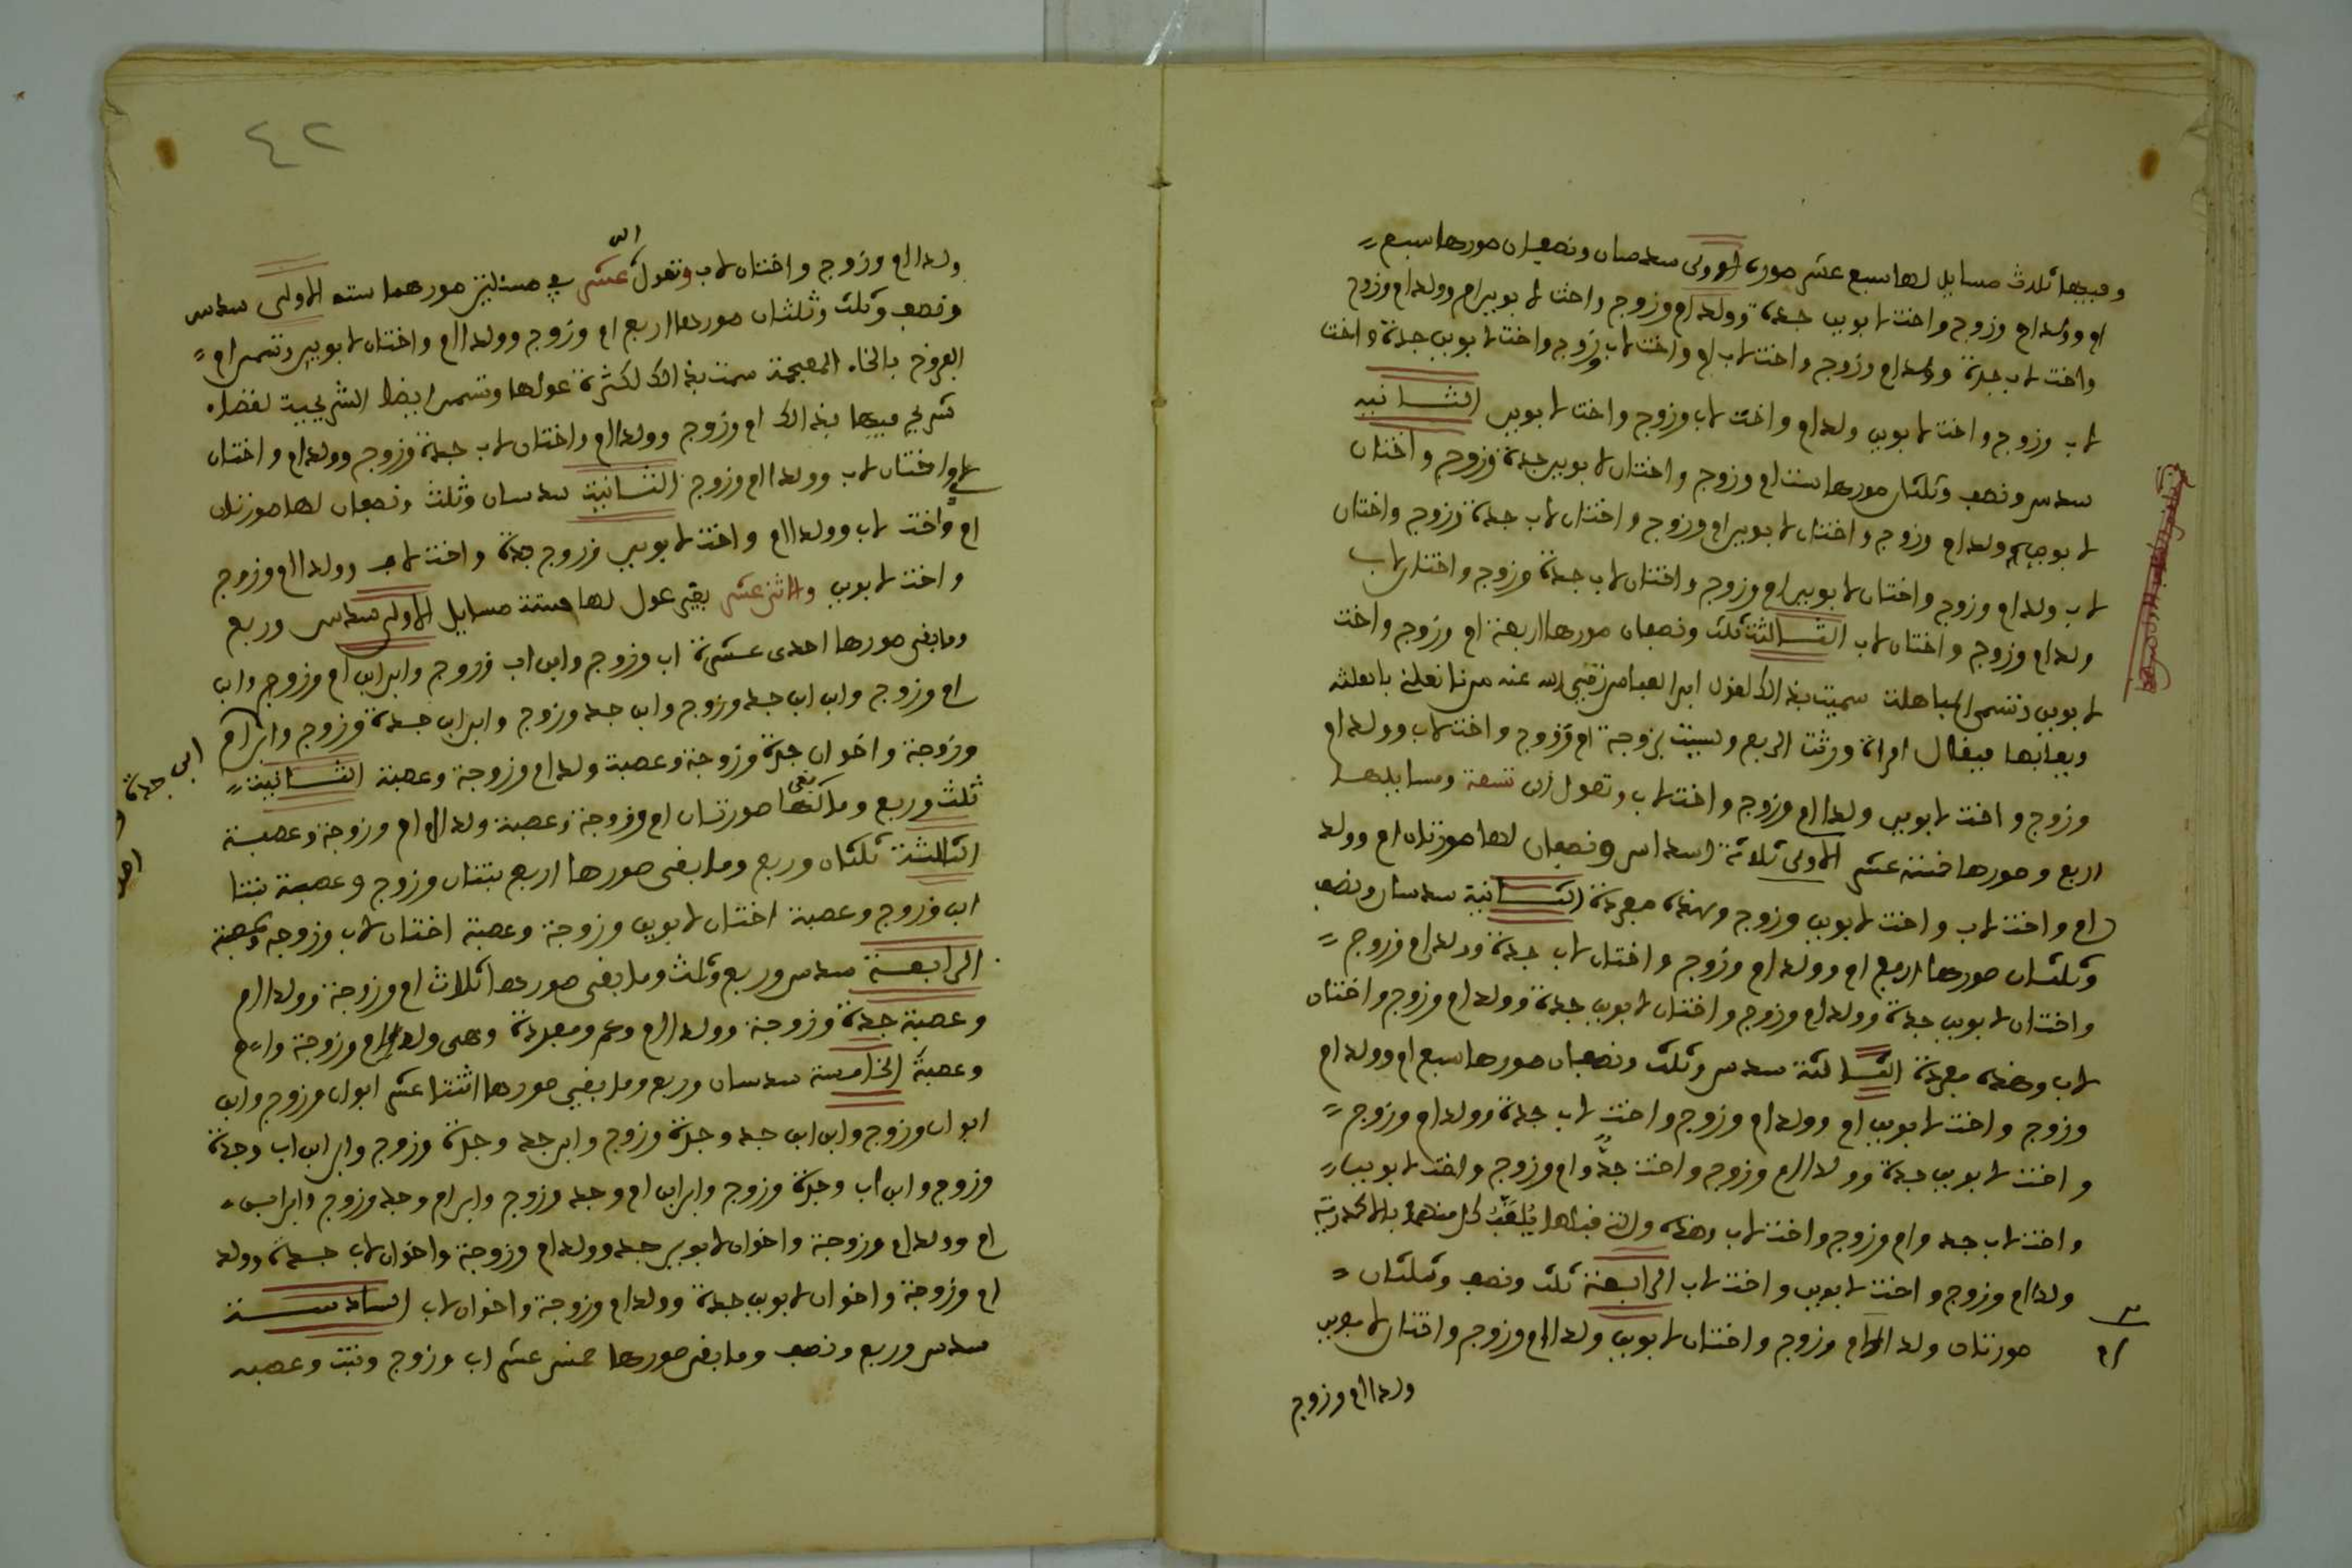 وفيها ثلاث مسايل لها سبع عشر صورة الاولى سدسان ونصفان صورها سبع
ام وولد ام وزوج واخت لابوين جدة وولد ام وزوج واخت لابوين ام وولد ام وزوج
واخت لاب جدة وولد ام وزوج واخت لاب ام واخت لاب وزوج واخت لابوين جدة واخت
لاب وزوج واخت لابوين ولد ام واخت لاب وزوج واخت لابوين الثانيه
سدس ونصف وثلثان صورها ست ام وزوج واختان لابوين جدة وزوج واختان
لابوين ولد ام وزوج واختان لابوين ام وزوج واختان لاب جدة وزوج واختان
لاب ولد ام وزوج واختان لابوين ام وزوج واختان لاب جدة وزوج واختان لاب
ولد ام وزوج واختان لاب الثالثة ثلث ونصفان صورها اربعة ام وزوج واخت
لابوين وتسمى المباهلة سميت بذالك لقول ابن العباس رضي الله عنه من
ويعايا بها فيقال امراة ورثت الربع وليست بزوجة ام وزوج واخت لاب وولد ام
وزوج واخت لابوين ولدا ام وزوج واخت لاب وتعول الى تسعة ومسايلها
اربع وصورها خمسة عشر الاولى ثلاثة اسداس ونصفان لها صورتان ام وولد
ام واخت لاب واخت لابوين وزوج وبهذه مفردة الثانية سدسان ونصف
وثلثان صورها اربع ام وولد ام وزوج واختان لاب جدة وولد ام وزوج
واختان لابوين جدة وولد ام وزوج واختان لابوين جدة وولد ام وزوج واختان
لاب وهذه مفردة الثالثة سدس وثلث ونصفان صورها سبع ام وولد ام
وزوج واخت لابوين ام وولد ام وزوج واخت لاب جدة وولد ام وزوج
واخت لابوين جدة وولدا ام وزوج واخت جد وام وزوج واخت لابوين
واخت لاب جد وام وزوج واخت لاب وهذه والتي قبلها يلقب كل منهما بالاكدرية
ولدا ام وزوج واخت لابوين واخت لاب الرابعة ثلث ونصف وثلثان
صورتان ولدا ام وزوج واختان لابوين ولدا ام وزوج واختان لابوين
ولدا ام وزوج
٤٢
ولدا ام وزوج واختان لاب وتعول الى عشر في مسئلتين صورهما ستة الاولى سدس
ونصف وثلث وثلثان صورها اربع ام وزوج وولدا ام واختان لابوين وتسمى ام
الفروخ بالخاء المعجمة سميت بذالك لكثرة عولها وتسمى ايضا الشريحية لقضاء
شريح فيها بذالك ام وزوج وولدا ام واختان لاب جدة وزوج وولد ام واختان
واختان لاب وولدا ام وزوج الثانية سدسان وثلث ونصفان لها صورتان
ام واخت لاب وولدا ام واخت لابوين وزوج جدة واخت لاب وولدا ام وزوج
واخت لابوين والاثنى عشر بغير عول لها ستة مسايل الاولى سدس وربع
وما بقي صورها احدى عشرة اب وزوج وابن اب وزوج وابن ابن ام وزوج وابن
ام وزوج وابن ابن جد وزوج وابن جد وزوج وابن ابن جدة وزوج وابن ام
وزوجة واخوان جدة وزوجة وعصبة ولد ام وزوجة وعصبة الثانية
ثلث وربع وما بقي لها صورتان ام وزوجة وعصبة ولدا ام وزوجة وعصبة
الثالثة ثلثان وربع وما بقي صورها اربع بنتان وزوج وعصبة بنتا
ابن وزوج وعصبة اختان لابوين وزوجة وعصبة اختان لاب وزوجه وعصبة
الرابعة سدس وربع وثلث وما بقي صورها ثلاث ام وزوجة وولدا ام
وعصبة جدة وزوجة وولدا ام وعم ومفردة وهي ولدا ام وزوجة وام
وعصبة الخامسة سدسان وربع وما بقي صورها اثنتا عشر ابوان وزوج وابن
ابوان وزوج وابن ابن جد وجدة وزوج وابن جد وجدة وزوج وابن ابن اب وجدة
وزوج وابن اب وجدة وزوج وابن ابن ام وجد وزوج وابن ام وجد وزوج وابن ابن
ام وولد ام وزوجة واخوان لابوين جد وولد ام وزوجة واخوان لاب جدة وولد
ام وزوجة واخوان لابوين جدة وولد ام وزوجة واخوان لاب السادسة
سدس وربع ونصف وما بقي صورها خمس عشر اب وزوج وبنت وعصبه
ابن جدة